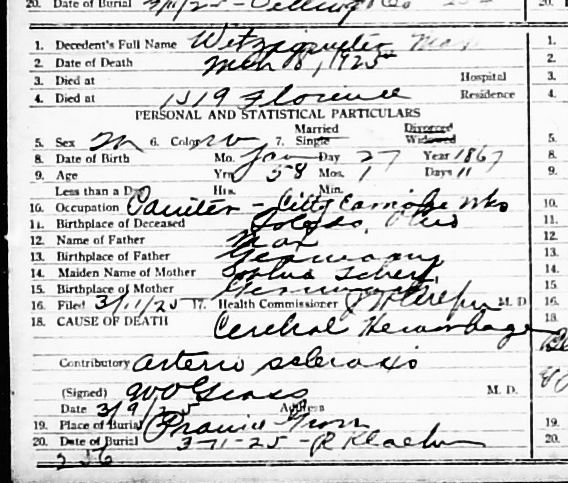 20. Date of Burial 3/11/25
1. Decedent's Full Name
2. Date of Death Mch 8, 1925
3. Died at Hospital
4. Died at 1519 Florence Residence
PERSONAL AND STATISTICAL PARTICULARS
5. Sex M 6. Color W 7. Married Single Divorced Widowed
8. Date of Birth Mo. Jan Day 27 Year 1867
9. Age Yrs. 58 Mos. 1 Days 11
Less than a Day Hrs. Min.
10. Occupation Painter - City Carriage Wks
11. Birthplace of Deceased Toledo, Ohio
12. Name of Father Max
13. Birthplace of Father Germany
14. Maiden Name of Mother
15. Birthplace of Mother Germany
16. Filed 3/11/25 17. Health Commissioner M. D.
18. CAUSE OF DEATH Cerebral Hemorrhage
Contributory Arterio sclerosis
(Signed) M. D.
Date 3/9/25 Address
19. Place of Burial
20. Date of Burial 3-11-25
256